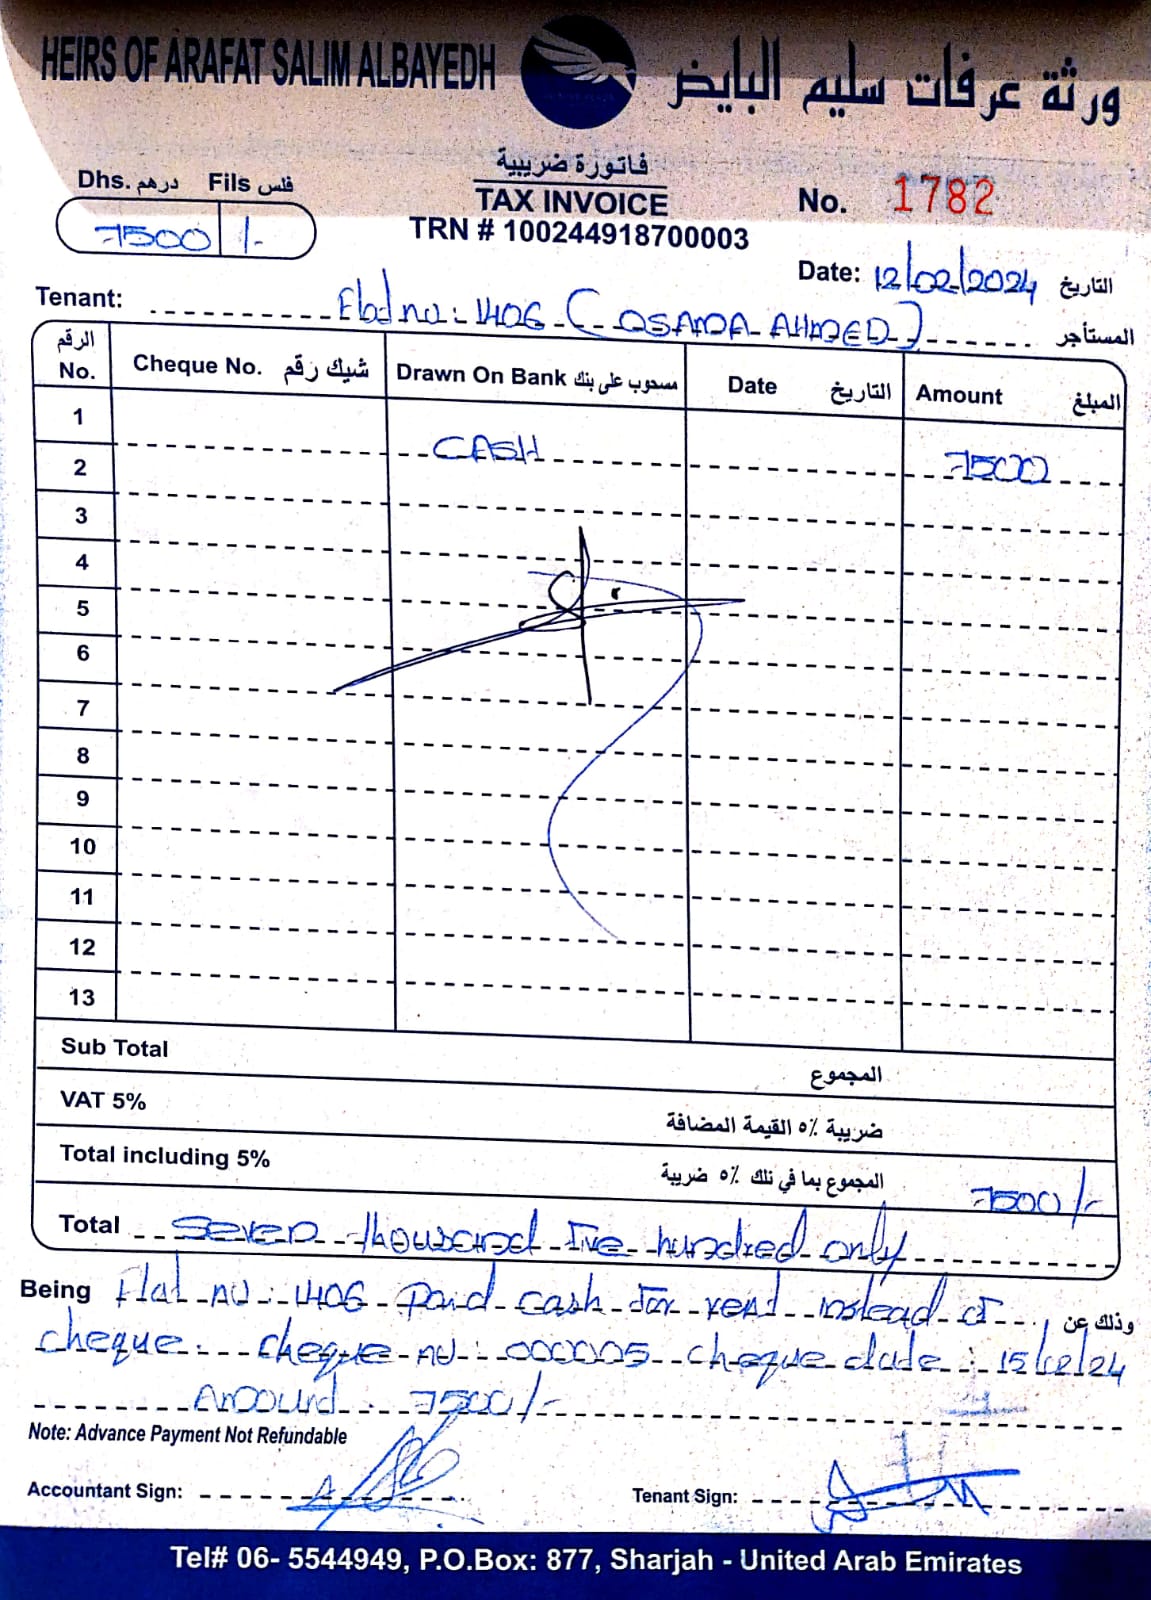 HEIRS OF ARAFAT SALIM ALBAYEDH
ورثة عرفات سليم البايض
Dhs. درهم Fils فلس
7500 /-
فاتورة ضريبية
TAX INVOICE
TRN # 100244918700003
No. 1782
Date: 12/02/2024 التاريخ
Tenant: Flat no: 1406 (OSAMA AHMED) المستأجر
الرقم No. Cheque No. شيك رقم Drawn On Bank مسحوب على بنك Date التاريخ Amount المبلغ
1
2 CASH 7500
3
4
5
6
7
8
9
10
11
12
13
Sub Total المجموع
VAT 5% ضريبة ٥٪ القيمة المضافة
Total including 5% المجموع بما في ذلك ٥٪ ضريبة 7500/-
Total Seven thousand five hundred only
Being Flat no: 1406 paid cash for rent instead of وذلك عن
cheque. cheque no: 000005 cheque date: 15/02/24
Amount: 7500/-
Note: Advance Payment Not Refundable
Accountant Sign: Tenant Sign:
Tel# 06- 5544949, P.O.Box: 877, Sharjah - United Arab Emirates